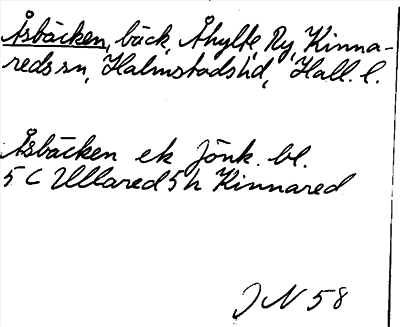 Åsbäcken, bäck, Åhylte, Ry, Kinna-
reds sn, Halmstads hd, Hall. l.
Åsbäcken ek Jönk. bl.
5 C Ullared 5 h Kinnared
JN 58